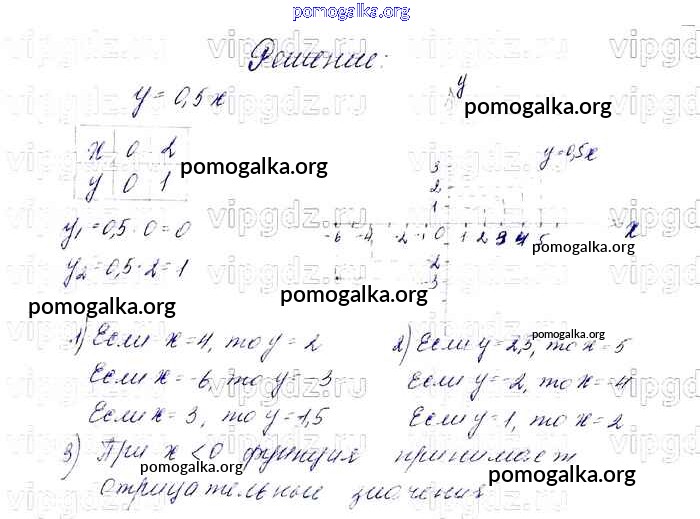 pomogalka.org
Решение:
y = 0,5x
x 0 2
y 0 1
y₁ = 0,5 · 0 = 0
y₂ = 0,5 · 2 = 1
y
y = 0,5x
3
2
1
-6 -4 -2 -1 0 1 2 3 4 5 x
-2
-3
pomogalka.org
pomogalka.org
pomogalka.org
pomogalka.org
pomogalka.org
1) Если x = 4, то y = 2
Если x = -6, то y = -3
Если x = 3, то y = 1,5
2) Если y = 2,5, то x = 5
Если y = -2, то x = -4
Если y = 1, то x = 2
pomogalka.org
3) При x < 0 функция принимает
отрицательные значения
pomogalka.org
pomogalka.org
vipgdz.ru